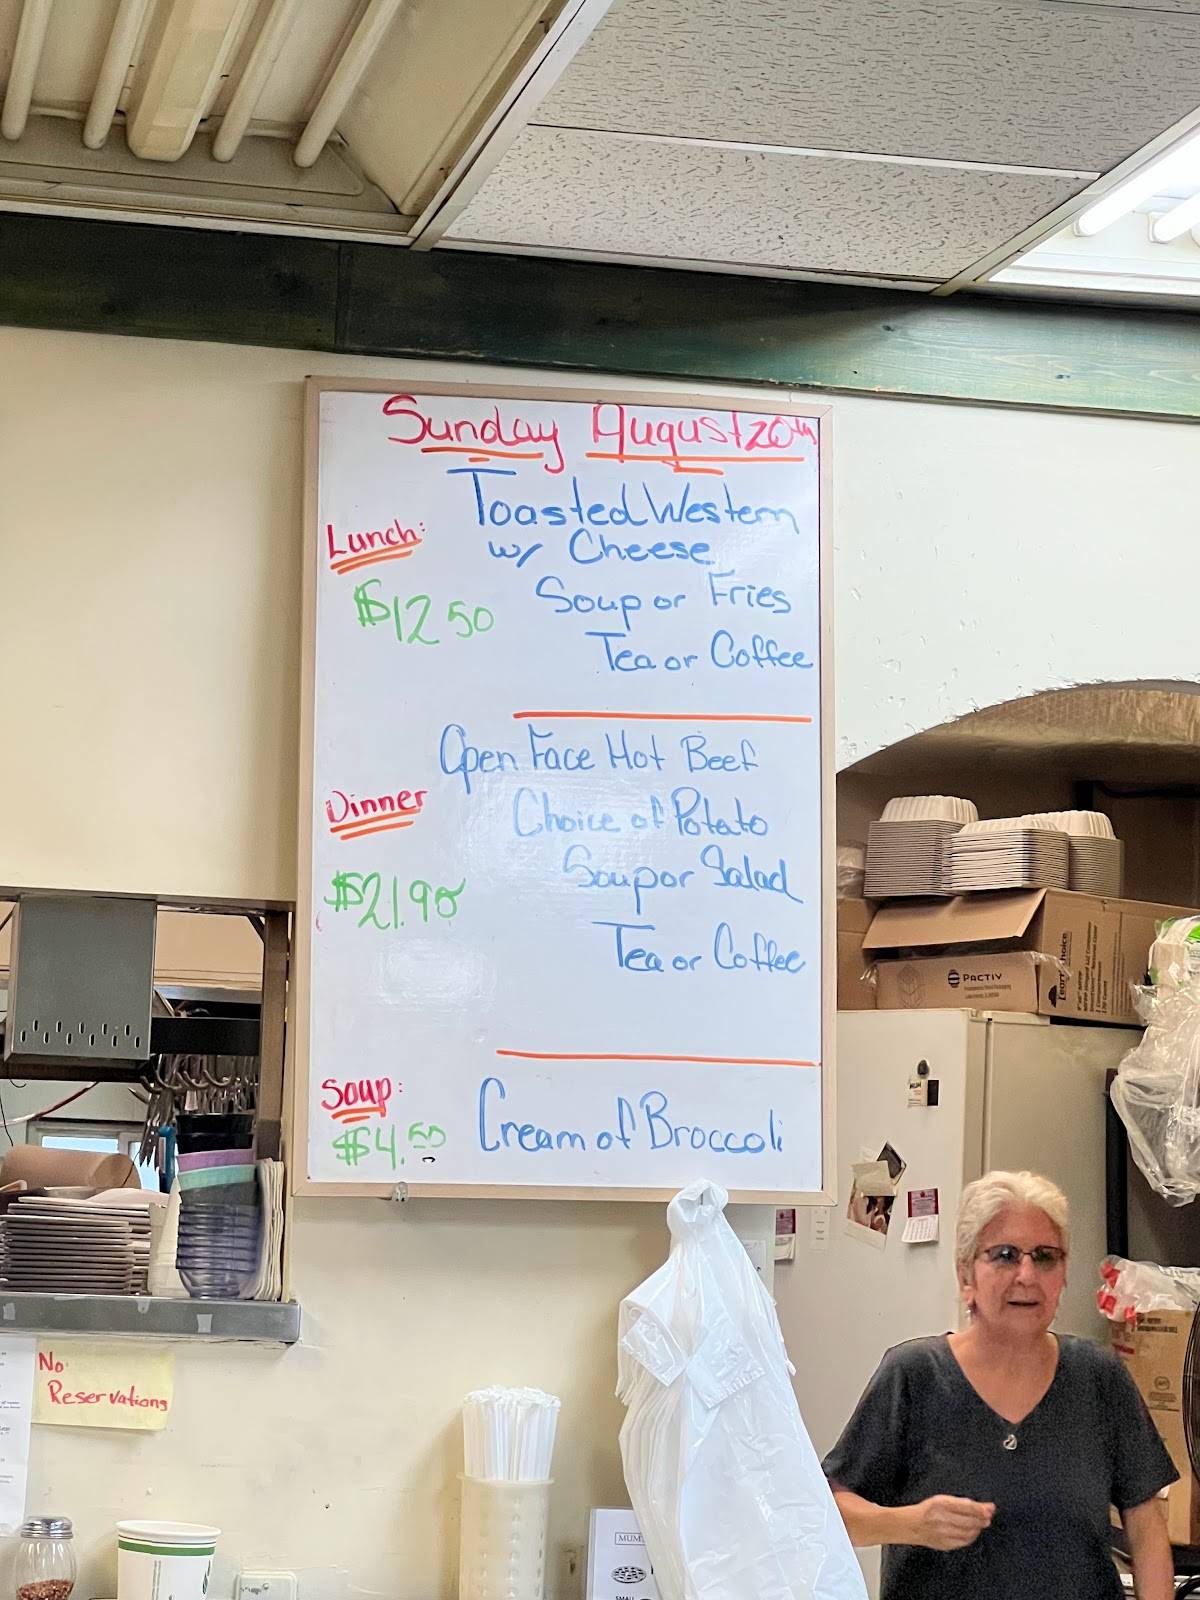 Sunday August 20th
Lunch:
Toasted Western
w/ Cheese
$12 50
Soup or Fries
Tea or Coffee
Open Face Hot Beef
Dinner
Choice of Potato
$21.98
Soup or Salad
Tea or Coffee
Soup:
$4.50
Cream of Broccoli
PACTIV
No
Reservations
MUM